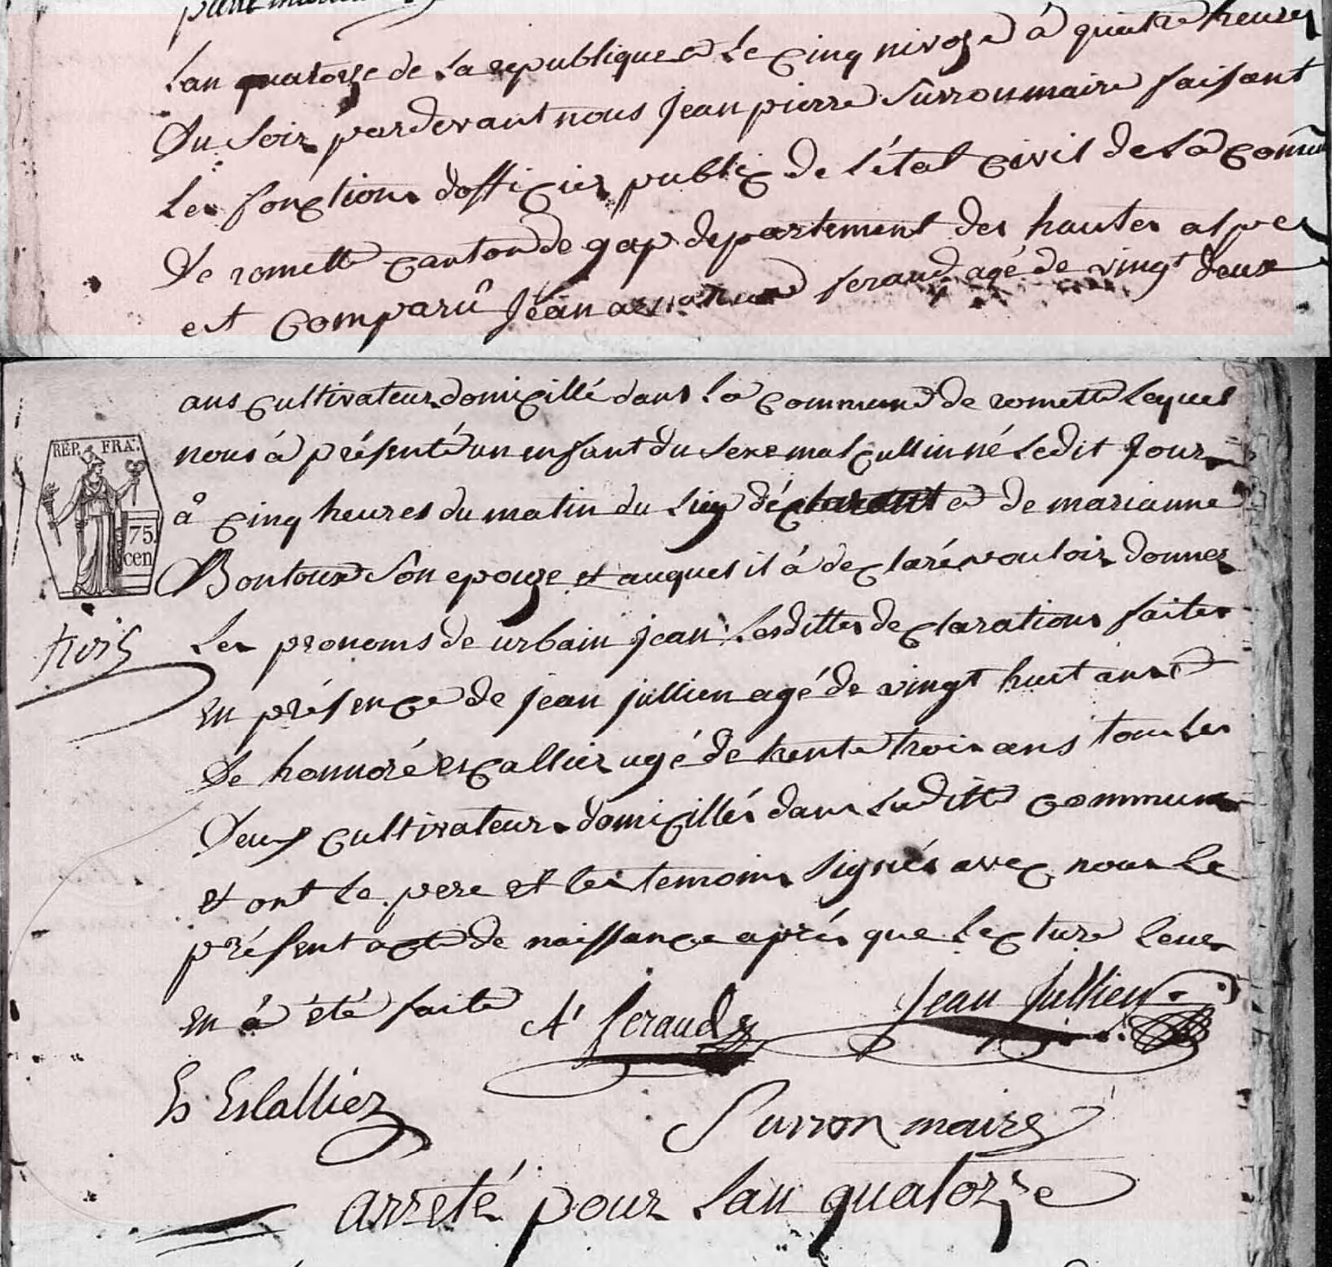 Lan quatorze de La republique et Le cinq nivoze à quatre heures
Du Soir pardevant nous Jean pierre Surron maire faisant
Les fonctions dofficier public de L'état civil de La comune
De romette canton de gap departement des hautes alpes
est comparu Jean feraud agé de vingt deux
ans cultivateur domicillé dans La commune de romette Lequel
nous à présenté un enfant du sexe masculin né Ledit Jour
à cinq heures du matin du Lieu déclarant et de marianne
Bontoux Son epouze et auquel il à declaré vouloir donner
Les pronoms de urbain jean Lesdittes declarations faites
En présence de jean jullien agé de vingt huit ans et
De honnoré escallier agé de trente trois ans tous Les
Deux cultivateurs domicillés dans Laditte commune
et ont Le pere et Les temoins Signés avec nous Le
présent acte de naissance aprés que Lecture Leur
En à été faite A' feraud Jean Jullien
RÉP. FRA.
75
cen
trois
Es Eslallier
Surron maire
arreté pour Lan quatorze